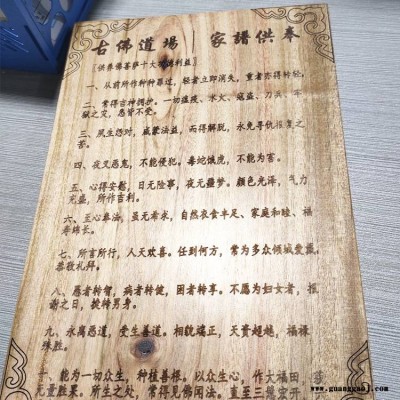 古佛道場 家譜供奉
〔供养佛菩萨十大功德利益〕
一、从前所作种种罪过，轻者立即消失，重者亦得转轻，
二、常得吉神拥护。一切瘟疫、水火、寇盗、刀兵、牢
狱之灾，悉皆不受。
三、夙生怨对，咸蒙法益，而得解脱，永免寻仇报复之
苦。
四、夜叉恶鬼，不能侵犯。毒蛇饿虎，不能为害。
五、心得安慰，日无险事，夜无噩梦。颜色光泽，气力
充盛，所作吉利。
六、至心奉法，虽无希求，自然衣食丰足、家庭和睦、福
寿绵长。
七、所言所行，人天欢喜。任到何方，常为多众倾诚爱戴，
恭敬礼拜。
八、愚者转智，病者转健，困者转亨。不愿为妇女者，报
谢之日，捷转男身。
九、永离恶道，受生善道。相貌端正，天资超越，福禄
殊胜。
十、能为一切众生，种植善根。以众生心，作大福田，获
无量胜果。所生之处，常得见佛闻法。直至三慧宏开，
www.guanggaoj.com